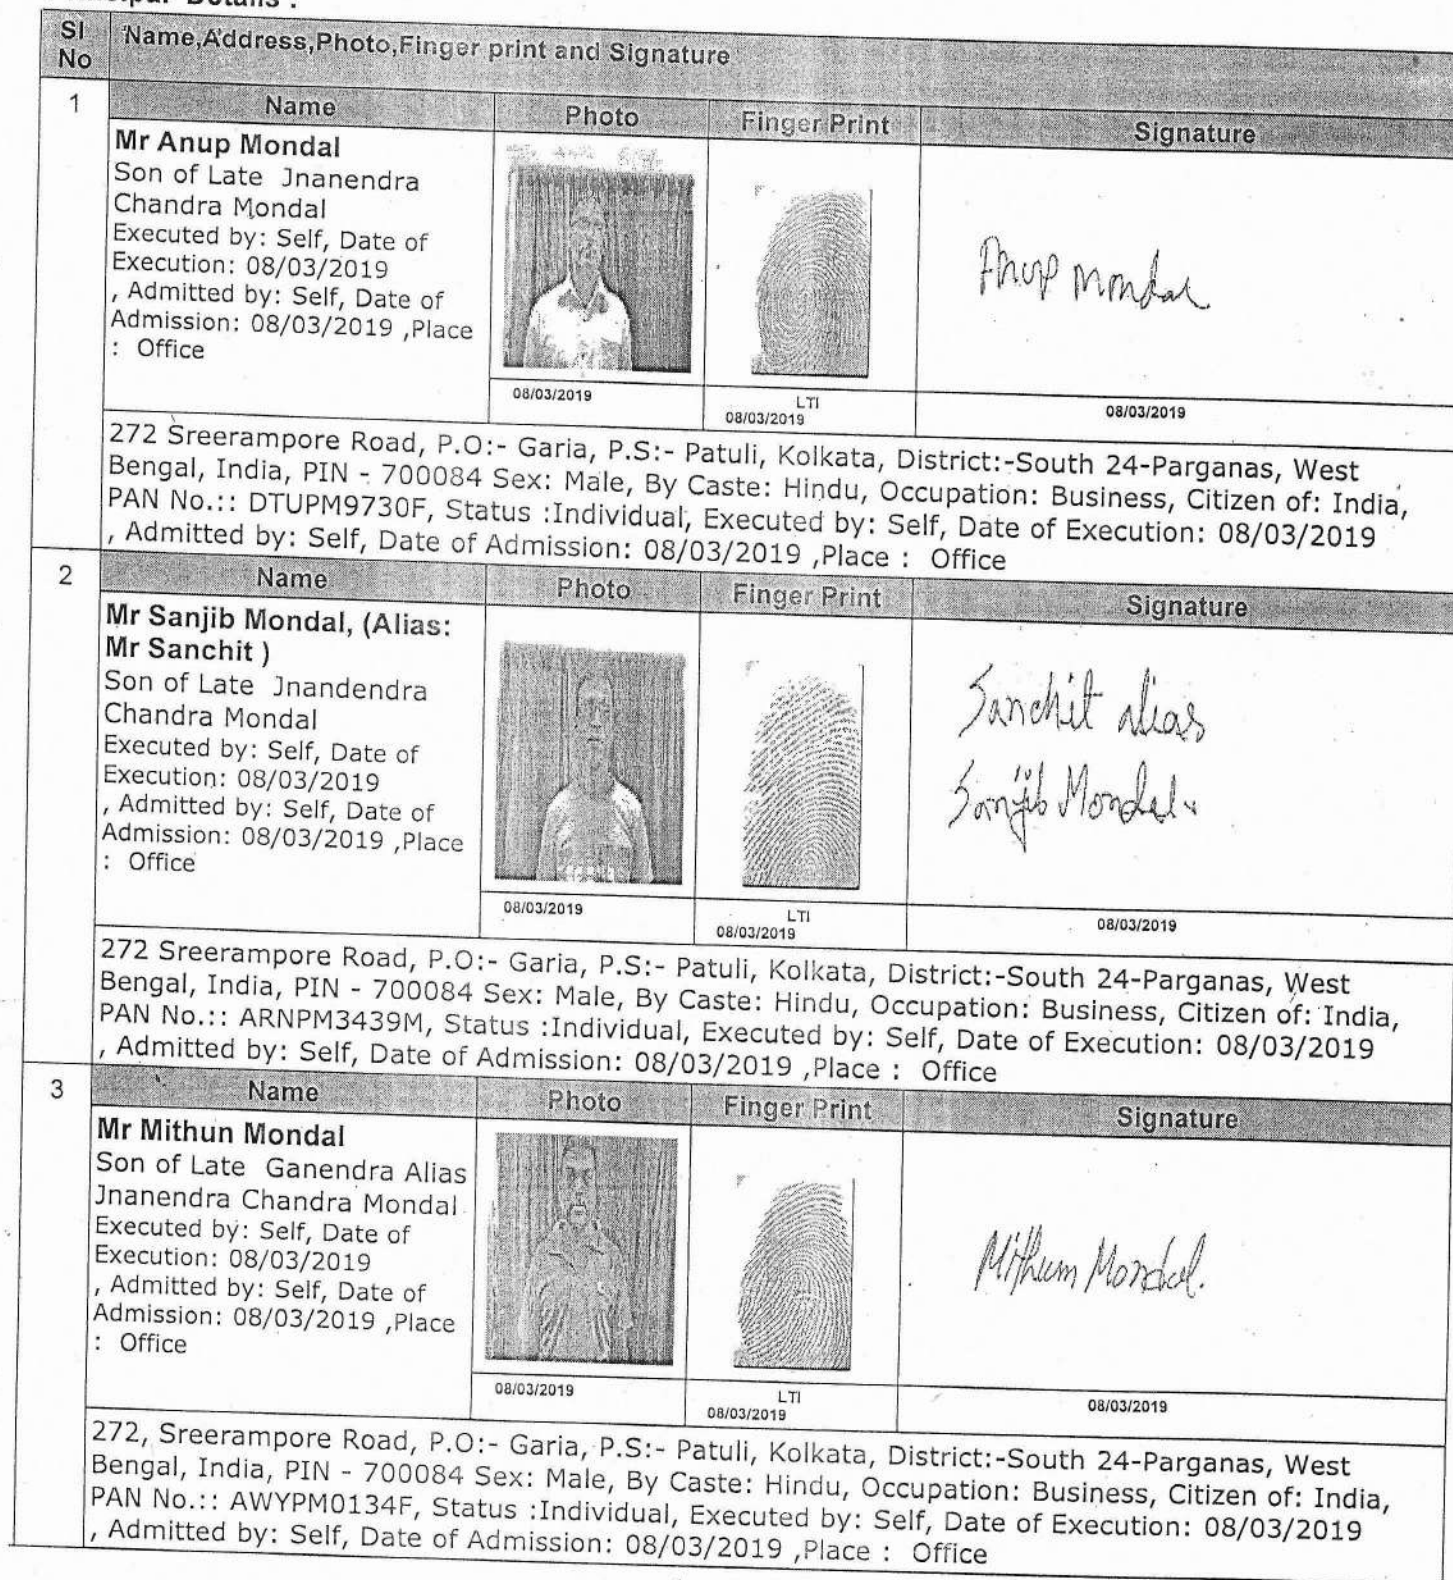 Details :
Sl No
Name,Address,Photo,Finger print and Signature
1
Name
Photo
Finger Print
Signature
Mr Anup Mondal
Son of Late Jnanendra
Chandra Mondal
Executed by: Self, Date of
Execution: 08/03/2019
, Admitted by: Self, Date of
Admission: 08/03/2019 ,Place
: Office
Anup Mondal
08/03/2019
LTI
08/03/2019
08/03/2019
272 Sreerampore Road, P.O:- Garia, P.S:- Patuli, Kolkata, District:-South 24-Parganas, West
Bengal, India, PIN - 700084 Sex: Male, By Caste: Hindu, Occupation: Business, Citizen of: India,
PAN No.:: DTUPM9730F, Status :Individual, Executed by: Self, Date of Execution: 08/03/2019
, Admitted by: Self, Date of Admission: 08/03/2019 ,Place : Office
2
Name
Photo
Finger Print
Signature
Mr Sanjib Mondal, (Alias:
Mr Sanchit )
Son of Late Jnandendra
Chandra Mondal
Executed by: Self, Date of
Execution: 08/03/2019
, Admitted by: Self, Date of
Admission: 08/03/2019 ,Place
: Office
Sanchit alias
Sanjib Mondal
08/03/2019
LTI
08/03/2019
08/03/2019
272 Sreerampore Road, P.O:- Garia, P.S:- Patuli, Kolkata, District:-South 24-Parganas, West
Bengal, India, PIN - 700084 Sex: Male, By Caste: Hindu, Occupation: Business, Citizen of: India,
PAN No.:: ARNPM3439M, Status :Individual, Executed by: Self, Date of Execution: 08/03/2019
, Admitted by: Self, Date of Admission: 08/03/2019 ,Place : Office
3
Name
Photo
Finger Print
Signature
Mr Mithun Mondal
Son of Late Ganendra Alias
Jnanendra Chandra Mondal
Executed by: Self, Date of
Execution: 08/03/2019
, Admitted by: Self, Date of
Admission: 08/03/2019 ,Place
: Office
Mithun Mondal.
08/03/2019
LTI
08/03/2019
08/03/2019
272, Sreerampore Road, P.O:- Garia, P.S:- Patuli, Kolkata, District:-South 24-Parganas, West
Bengal, India, PIN - 700084 Sex: Male, By Caste: Hindu, Occupation: Business, Citizen of: India,
PAN No.:: AWYPM0134F, Status :Individual, Executed by: Self, Date of Execution: 08/03/2019
, Admitted by: Self, Date of Admission: 08/03/2019 ,Place : Office